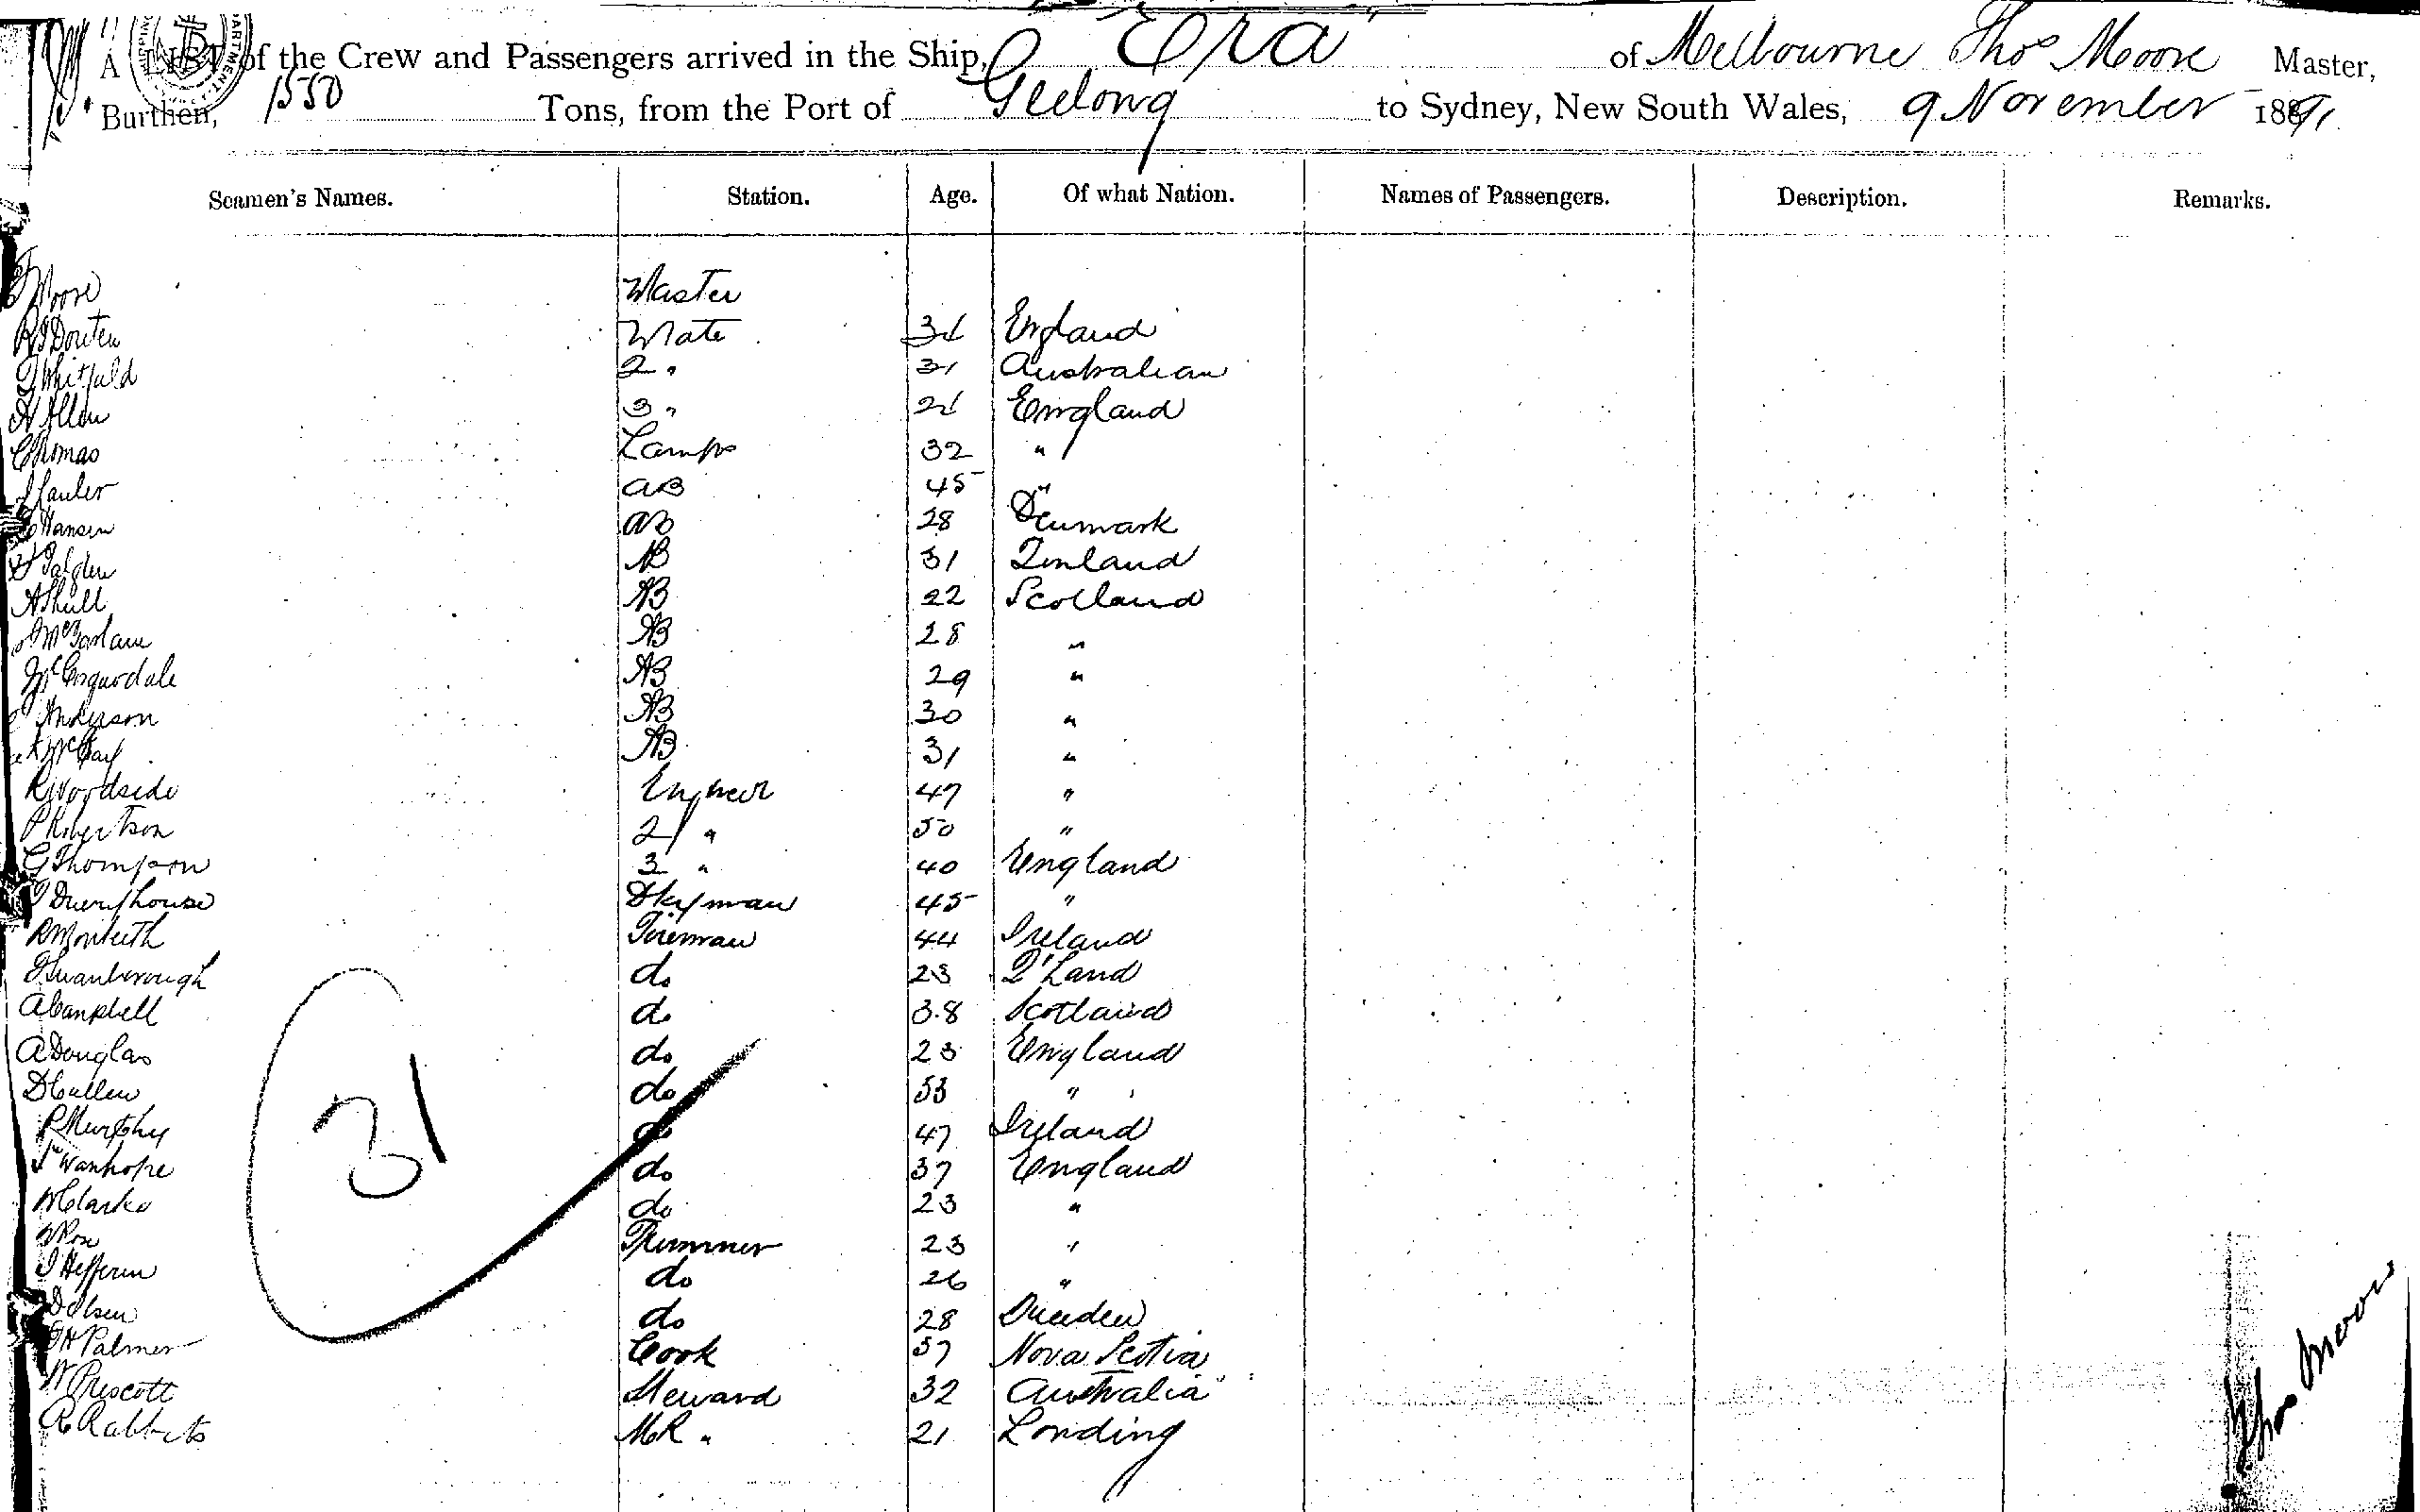 A LIST of the Crew and Passengers arrived in the Ship, "Era" of Melbourne Thos Moore Master,
Burthen, 1550 Tons, from the Port of Geelong to Sydney, New South Wales, 9 November 1891
Seamen's Names. Station. Age. Of what Nation. Names of Passengers. Description. Remarks.
T Moore Master
Mate 31 England
Whitfield 2 " 31 Australian
A Allen 3 " 21 England
C Thomas Lamps 32 "
AB 45 "
Hansen AB 28 Denmark
AB 31 Finland
AB 22 Scotland
McFarlane AB 28 "
McCorquodale AB 29 "
Anderson AB 30 "
AB 31 "
R Woodside Engineer 47 "
P Robertson 2/ " 50 "
G Thompson 3 " 40 England
Dkyman 45 "
R Monteith Fireman 44 Ireland
Swanborough do 23 Q'Land
A Campbell do 38 Scotland
A Douglas do 23 England
D Cullen do 53 "
P Murphy do 47 Ireland
Wanhope do 37 England
W Clarke do 23 "
Trimmer 23 "
Hefferen do 26 "
D Olsen do 28
Palmer Cook 57 Nova Scotia
W Prescott Steward 32 Australia
R Rabbets MR " 21
31
Thos Moore